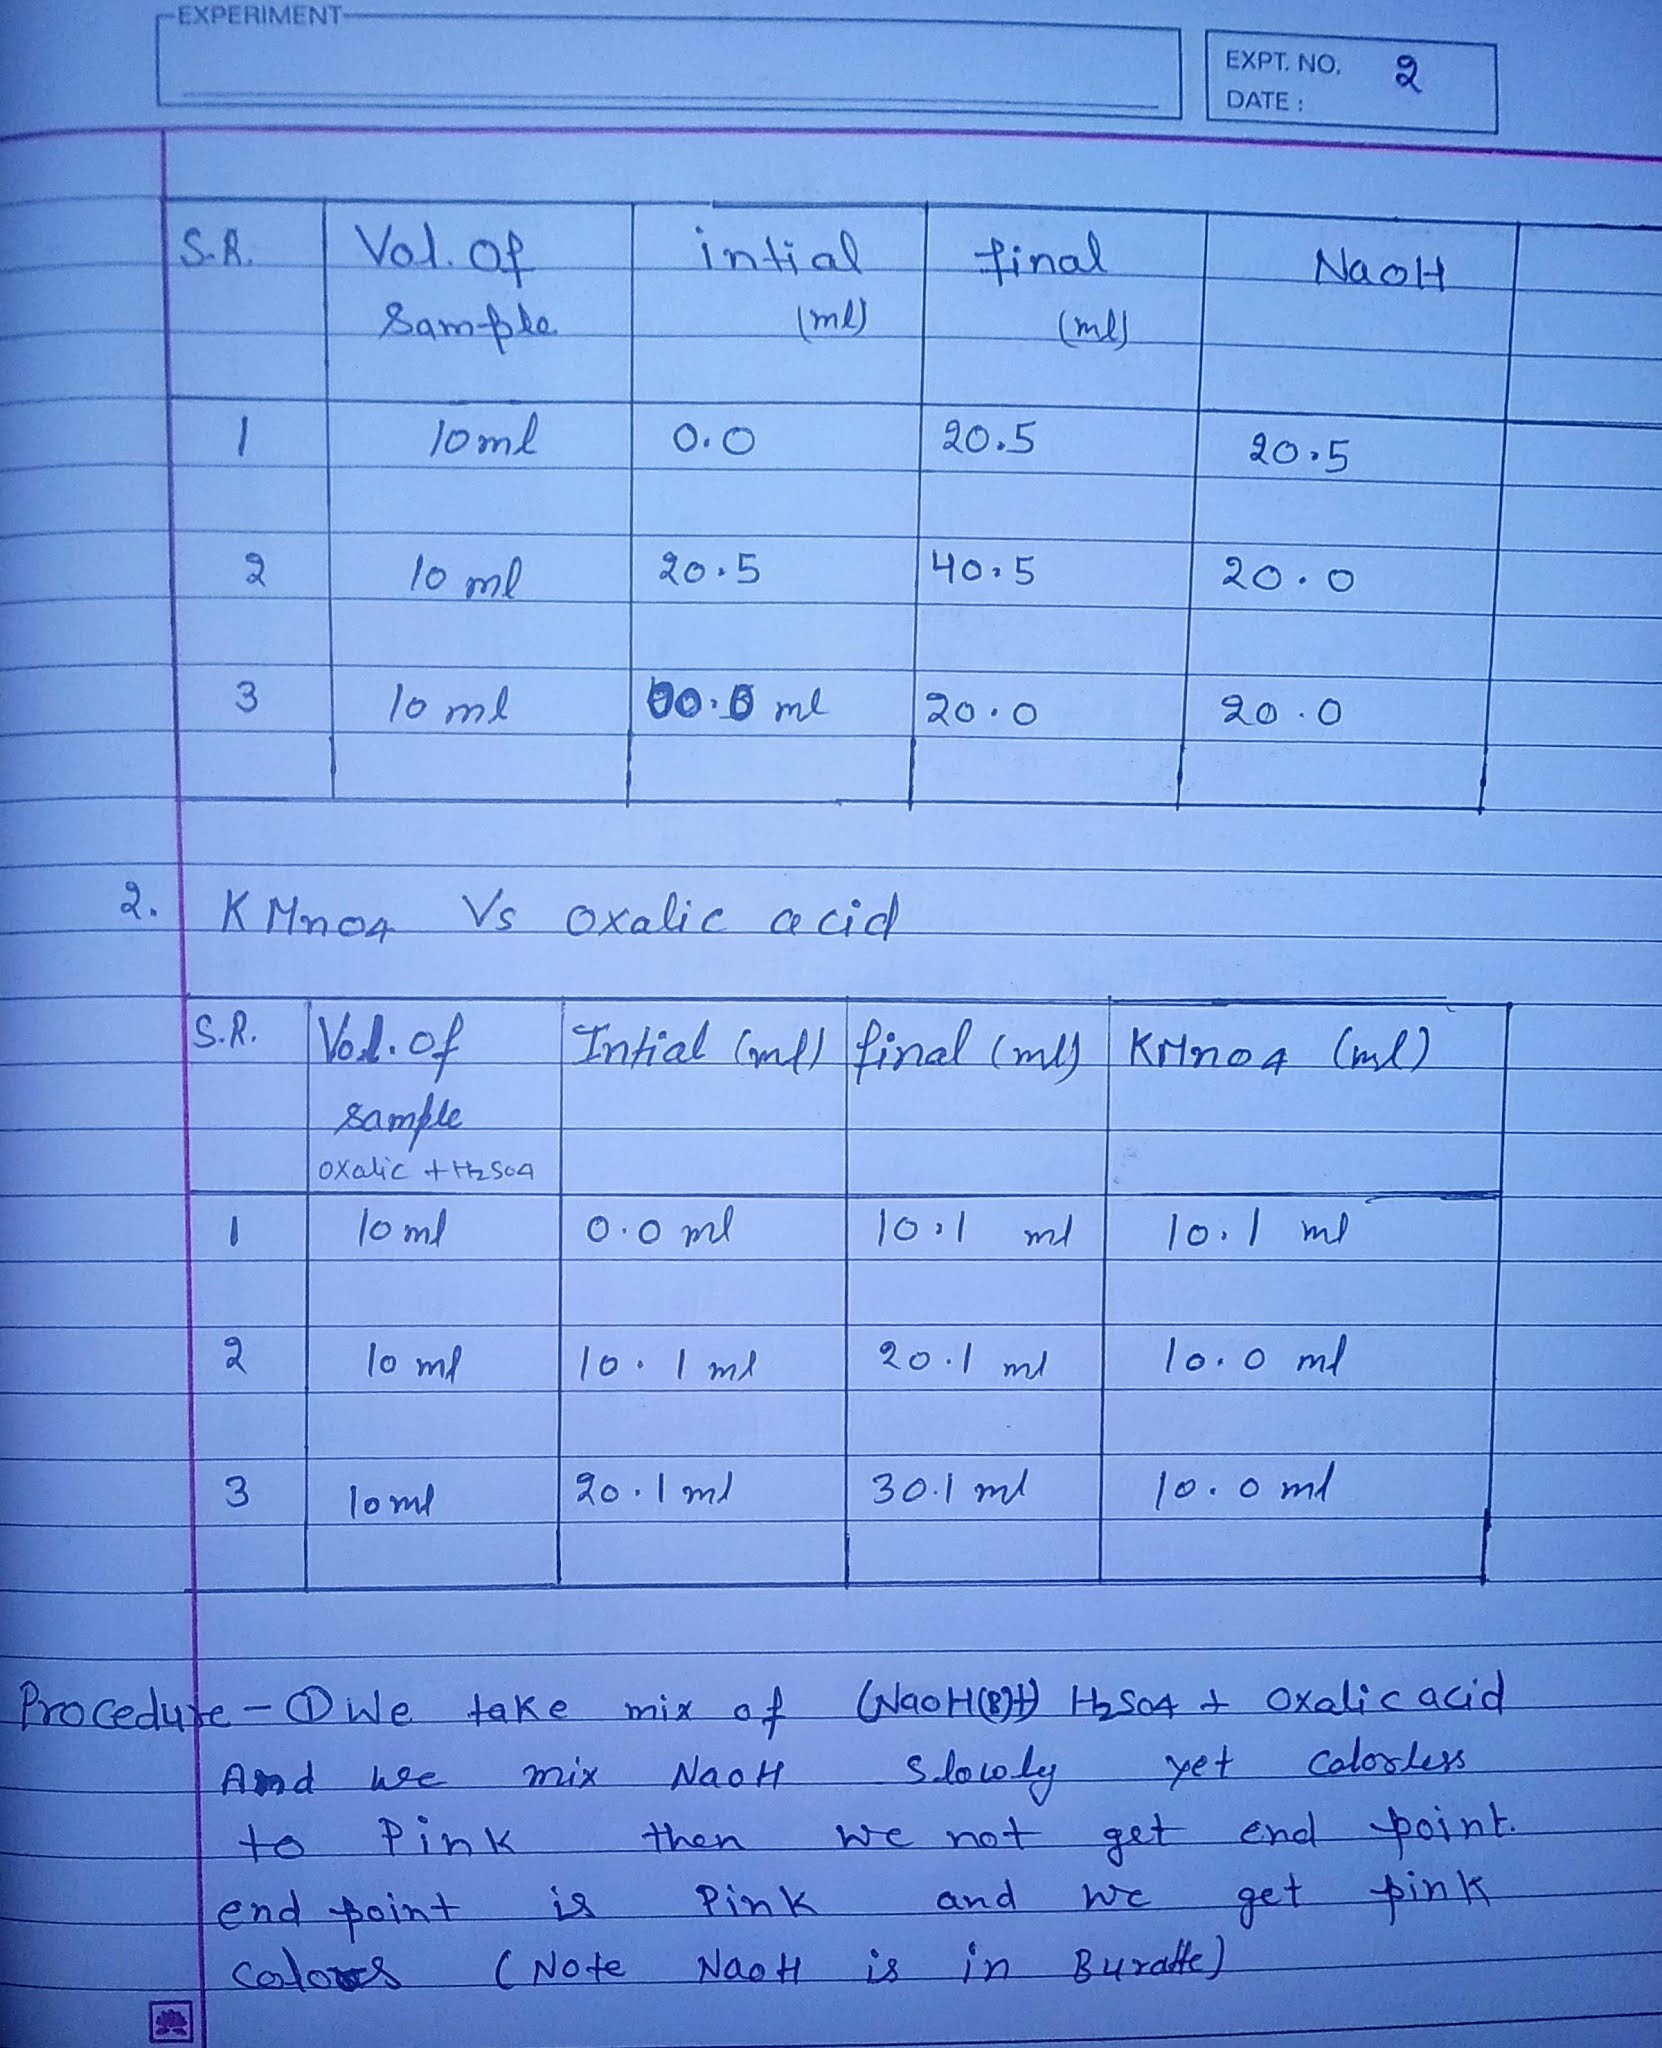 EXPERIMENT
EXPT. NO. 2
DATE :
S.R. Vol. Of intial final NaOH
Sample (ml) (ml)
1 10ml 0.0 20.5 20.5
2 10 ml 20.5 40.5 20.0
3 10 ml 00.0 ml 20.0 20.0
2. KMnO4 Vs Oxalic acid
S.R. Vol. of Intial (ml) final (ml) KMnO4 (ml)
sample
oxalic + H2SO4
1 10 ml 0.0 ml 10.1 ml 10.1 ml
2 10 ml 10.1 ml 20.1 ml 10.0 ml
3 10ml 20.1 ml 30.1 ml 10.0 ml
Procedure - ① We take mix of H2SO4 + Oxalic acid
And we mix NaOH slowly yet colorless
to Pink then we not get end point.
end point is Pink and we get pink
(Note NaOH is in Buratte)